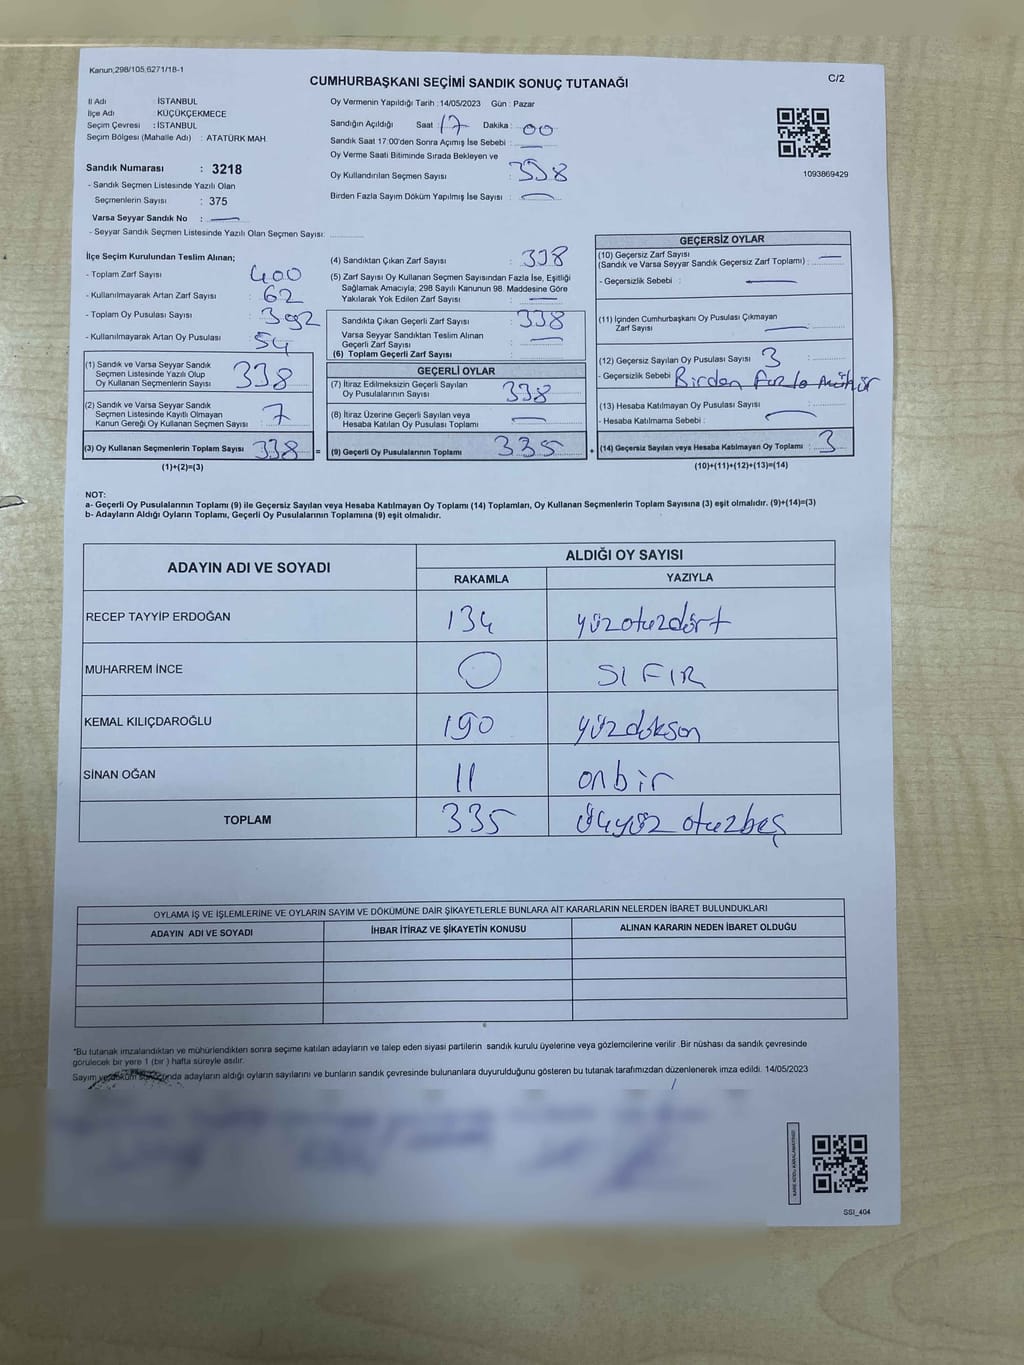 Kanun;298/105;6271/18-1
CUMHURBAŞKANI SEÇİMİ SANDIK SONUÇ TUTANAĞI
C/2
İl Adı : İSTANBUL
İlçe Adı : KÜÇÜKÇEKMECE
Seçim Çevresi : İSTANBUL
Seçim Bölgesi (Mahalle Adı) : ATATÜRK MAH.
Sandık Numarası : 3218
- Sandık Seçmen Listesinde Yazılı Olan
Seçmenlerin Sayısı : 375
Varsa Seyyar Sandık No :
- Seyyar Sandık Seçmen Listesinde Yazılı Olan Seçmen Sayısı:
Oy Vermenin Yapıldığı Tarih :14/05/2023 Gün : Pazar
Sandığın Açıldığı Saat : 17 Dakika : 00
Sandık Saat 17:00'den Sonra Açımış İse Sebebi :
Oy Verme Saati Bitiminde Sırada Bekleyen ve
Oy Kullandırılan Seçmen Sayısı : 338
Birden Fazla Sayım Döküm Yapılmış İse Sayısı :
1093869429
İlçe Seçim Kurulundan Teslim Alınan;
- Toplam Zarf Sayısı : 400
- Kullanılmayarak Artan Zarf Sayısı : 62
- Toplam Oy Pusulası Sayısı : 392
- Kullanılmayarak Artan Oy Pusulası : 54
(1) Sandık ve Varsa Seyyar Sandık
Seçmen Listesinde Yazılı Olup
Oy Kullanan Seçmenlerin Sayısı : 338
(2) Sandık ve Varsa Seyyar Sandık
Seçmen Listesinde Kayıtlı Olmayan
Kanun Gereği Oy Kullanan Seçmen Sayısı : 7
(3) Oy Kullanan Seçmenlerin Toplam Sayısı : 338 =
(1)+(2)=(3)
(4) Sandıktan Çıkan Zarf Sayısı : 338
(5) Zarf Sayısı Oy Kullanan Seçmen Sayısından Fazla İse, Eşitliği
Sağlamak Amacıyla; 298 Sayılı Kanunun 98. Maddesine Göre
Yakılarak Yok Edilen Zarf Sayısı :
Sandıkta Çıkan Geçerli Zarf Sayısı : 338
Varsa Seyyar Sandıktan Teslim Alınan
Geçerli Zarf Sayısı :
(6) Toplam Geçerli Zarf Sayısı :
GEÇERLİ OYLAR
(7) İtiraz Edilmeksizin Geçerli Sayılan
Oy Pusulalarının Sayısı : 338
(8) İtiraz Üzerine Geçerli Sayılan veya
Hesaba Katılan Oy Pusulası Toplamı :
(9) Geçerli Oy Pusulalarının Toplamı : 335 +
GEÇERSİZ OYLAR
(10) Geçersiz Zarf Sayısı
(Sandık ve Varsa Seyyar Sandık Geçersiz Zarf Toplamı) :
- Geçersizlik Sebebi :
(11) İçinden Cumhurbaşkanı Oy Pusulası Çıkmayan
Zarf Sayısı :
(12) Geçersiz Sayılan Oy Pusulası Sayısı : 3
- Geçersizlik Sebebi : Birden Fazla Mühür
(13) Hesaba Katılmayan Oy Pusulası Sayısı :
- Hesaba Katılmama Sebebi :
(14) Geçersiz Sayılan veya Hesaba Katılmayan Oy Toplamı : 3
(10)+(11)+(12)+(13)=(14)
NOT:
a- Geçerli Oy Pusulalarının Toplamı (9) ile Geçersiz Sayılan veya Hesaba Katılmayan Oy Toplamı (14) Toplamları, Oy Kullanan Seçmenlerin Toplam Sayısına (3) eşit olmalıdır. (9)+(14)=(3)
b- Adayların Aldığı Oyların Toplamı, Geçerli Oy Pusulalarının Toplamına (9) eşit olmalıdır.
ADAYIN ADI VE SOYADI
ALDIĞI OY SAYISI
RAKAMLA YAZIYLA
RECEP TAYYİP ERDOĞAN 134 yüzotuzdört
MUHARREM İNCE 0 SIFIR
KEMAL KILIÇDAROĞLU 190 yüzdoksan
SİNAN OĞAN 11 onbir
TOPLAM 335 üçyüz otuzbeş
OYLAMA İŞ VE İŞLEMLERİNE VE OYLARIN SAYIM VE DÖKÜMÜNE DAİR ŞİKAYETLERLE BUNLARA AİT KARARLARIN NELERDEN İBARET BULUNDUKLARI
ADAYIN ADI VE SOYADI İHBAR İTİRAZ VE ŞİKAYETİN KONUSU ALINAN KARARIN NEDEN İBARET OLDUĞU
*Bu tutanak imzalandıktan ve mühürlendikten sonra seçime katılan adayların ve talep eden siyasi partilerin sandık kurulu üyelerine veya gözlemcilerine verilir .Bir nüshası da sandık çevresinde
görülecek bir yere 1 (bir ) hafta süreyle asılır.
Sayım adayların aldığı oyların sayılarını ve bunların sandık çevresinde bulunanlara duyurulduğunu gösteren bu tutanak tarafımızdan düzenlenerek imza edildi. 14/05/2023
SSI_404